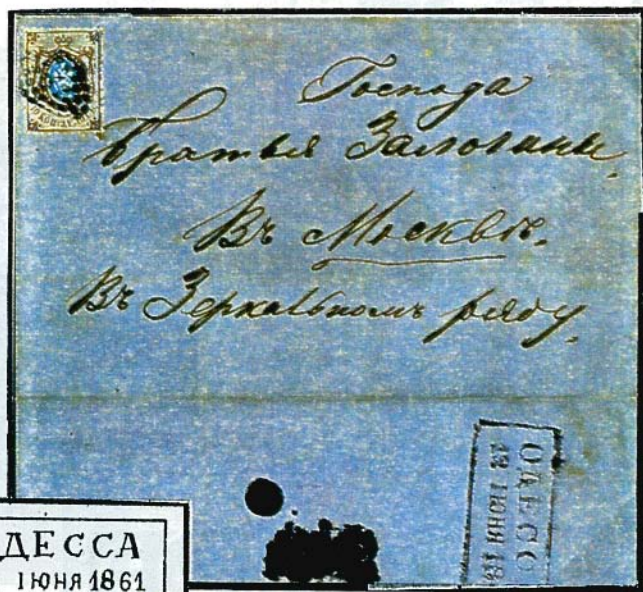 Господа
братья Залогины.
Въ Москвѣ.
Въ Зеркальномъ ряду.
ОДЕССО
ІЮНЯ 18
ДЕССА
ІЮНЯ 1861